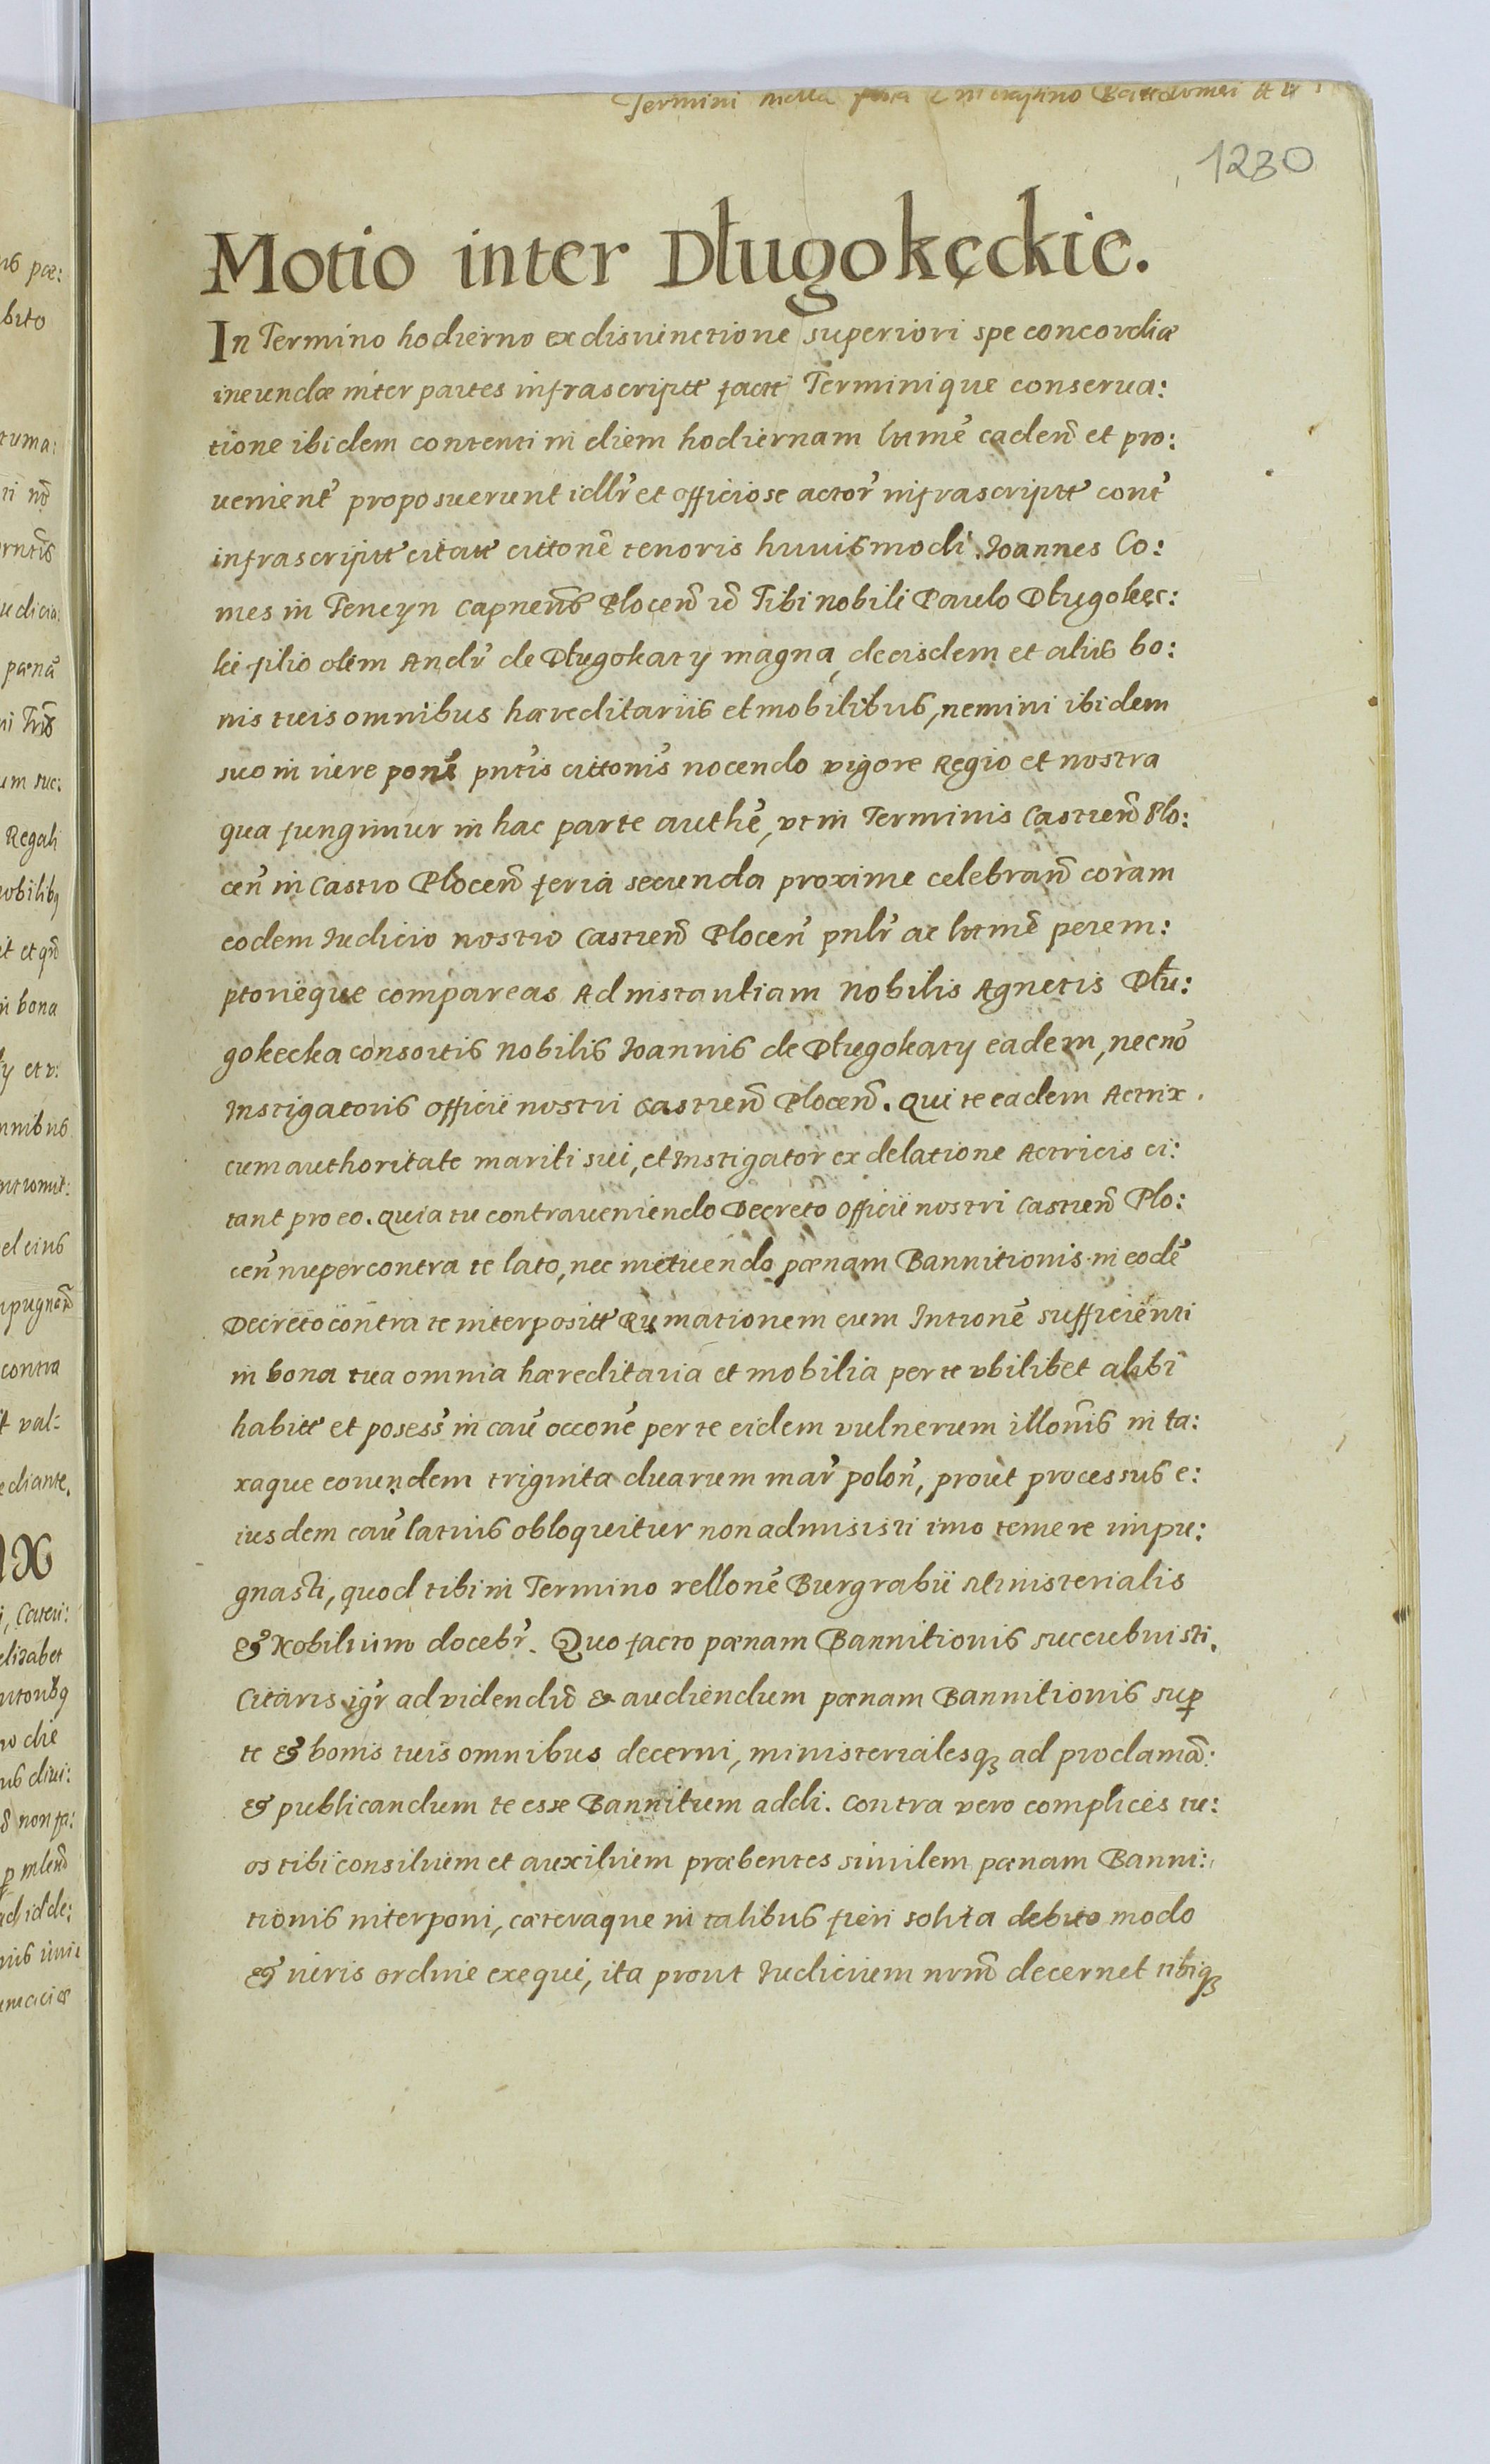 Termini
1230
Motio inter Długokęckie.
In Termino hodierno ex disiunctione superiori spe concordiæ
ineundæ inter partes infrascriptt factt Terminique conserua:
tione ibidem contenti in diem hodiernam lttmē cadeñ et pro:
uenieñt proposuerunt idlr̃ et officiose actor̃ infrascriptt cont̃
infrascriptt citatt cittonē tenoris huuismodi. Joannes Co:
mes in Tencyn Capnenῠs Plocen̄ Tibi nobili Paulo Długokęc:
ki filio olim Andr̃ de Długokąty magna, de eisdem et aliis bo:
nis tuis omnibus hæreditariis et mobilibus, nemini ibidem
suo in iure pon̄e pn̄tis cittonis nocendo vigore Regio et nostra
qua fungimur in hac parte authē, vt in Terminis Castren̄ Plo:
cen̄ in Castro Plocen̄ feria secunda proxime celebran̄ coram
eodem Iudicio nostro Castren̄ Plocen̄ pnlr̃ ac lttmē perem:
ptorieque compareas Ad instantiam Nobilis Agnetis Dłu:
gokecka consortis Nobilis Joannis de Długokąty eadem, necnō
Instigatoris officii nostri Castren̄ Plocen̄. Qui te eadem Actrix
cum authoritate mariti sui, et Instigator ex delatione Actricis ci:
tant pro eo. Quia tu contraueniendo Decreto Officii nostri Castren̄ Plo:
cen̄ nuper contra te lato, nec metuendo pænam Bannitionis in eodē
Decreto contra te interpositt Rumationem cum Intronē sufficienti
in bona tua omnia hæreditaria et mobilia per te vbilibet alibi
habitt et posess̃ in cau̇̃ occonē per te eidem vulnerum illonis in ta:
xaque eorundem triginta duarum mar̃ polon̄, prout processus e:
iusdem cau̇̃ latius obloquitur non admisisti imo temere impu:
gnasti, quod tibi in Termino rellonē Burgrabii Ministerialis
& Nobilium docebr̃. Quo facto pænam Bannitionis succubuisti.
Citaris igr̃ ad videndū & audiendum pænam Bannitionis sup̱
te & bonis tuis omnibus decerni, ministerialesqȝ ad proclamā:
& publicandum te esse Bannitum addi. Contra vero complices tu:
os tibi consilium et auxilium præbentes similem pænam Banni:
tionis interponi, cæteraque in talibus fieri solita debito modo
& iuris ordine exequi, ita prout Iudicium nrm̄ decernet tibiqȝ